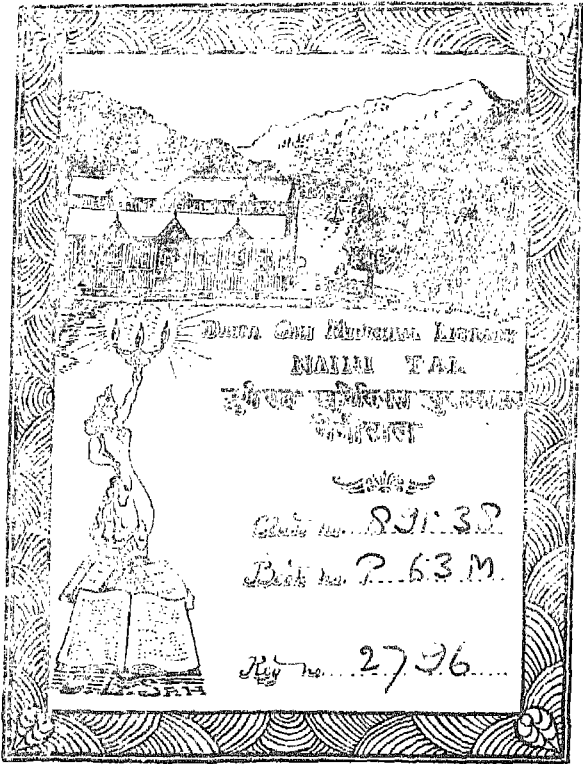 DURGA SAH MUNICIPAL LIBRARY
NAINI TAL
पुस्तकालय
नैनीताल
Class no. 891.38
Book no. P 63 M
Reg no. 2796
SAH